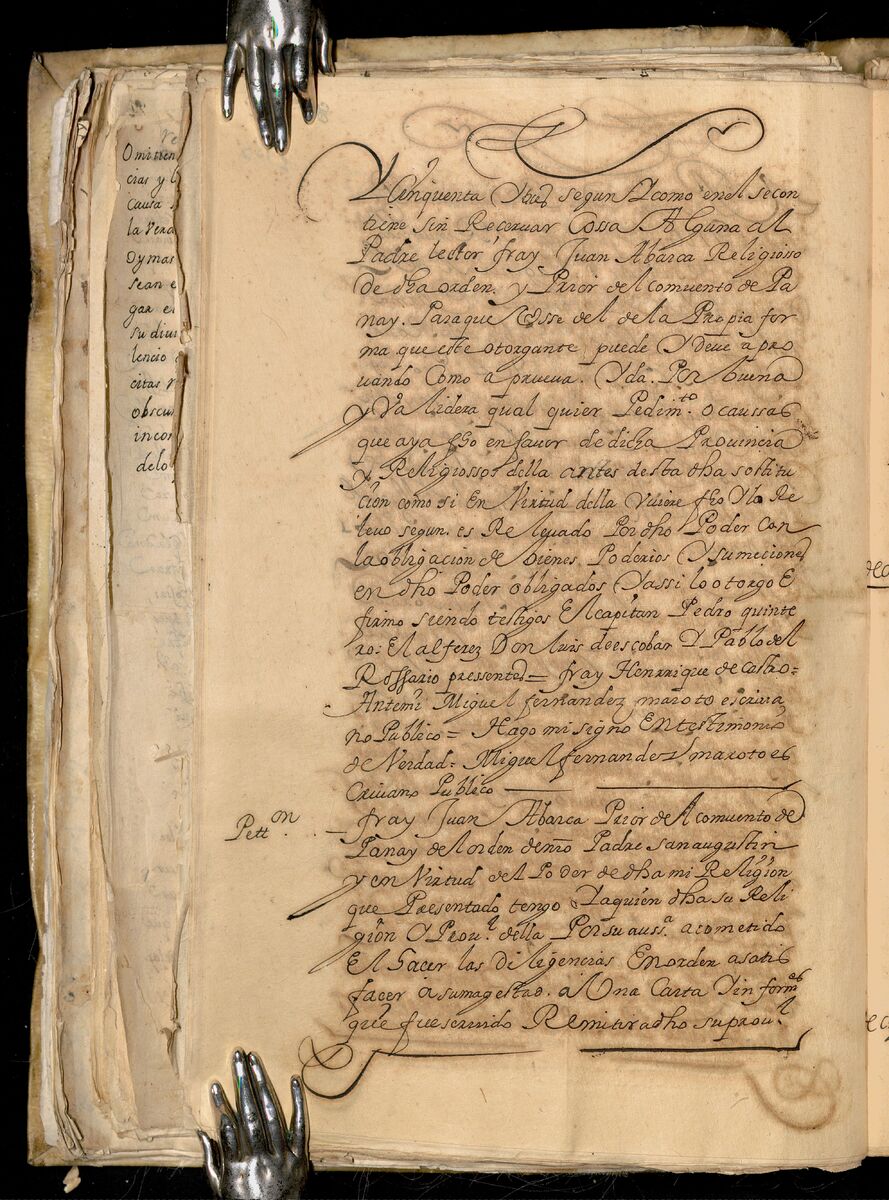 Omitien
cias y l
causa
la Verd
Dymas
sean e
gar e
su diui
lencio
citas
obscu
incon
delo
Cinquenta Y tres segun Y como en el se con
tiene sin Receruar Cossa Alguna al
Padre lector fray Juan Abarca Religiosso
de dha orden. y Prior del comuento de Pa
nay. Paraque Vsse del de la Propia for
ma que este otorgante puede Y deve apro
uando Como aprueua. Y da. Por buena
y Validera qual quier Pedimto. o caussas
que aya fho en favor de dicha Prouincia
y Religiossos della antes desta dha sostitu
cion como si En Virtud della Vuiere fho Y lo Re
leuo segun. es Releuado Por dho Poder Con
la obligacion de bienes Poderios Y sumiciones
en dho Poder obligados Y assi lo otorgo E
firmo siendo testigos El capitan Pedro quinte
ro: El alferez Don luis de escobar Y Pablo del
Rossario presentes = fray Henrrique de castro =
Antemi Miguel fernandez maroto escriua
no Publico = Hago mi signo En testimonio
de Verdad = Miguel fernandez maroto es
Criuano Publico
Petton.
fray Juan Abarca Prior del comuento de
Panay del orden de nro Padre san augustin
y en Virtud del Poder de dha mi Religion
que Presentado tengo Y a quien dha su Reli
gion O Prou.ª della Por su aussª. a cometido
El hacer las Diligencias En orden a satis
facer a su magestad. a Una Carta Y informes
que fue seruido Remitir a dho su prou.l